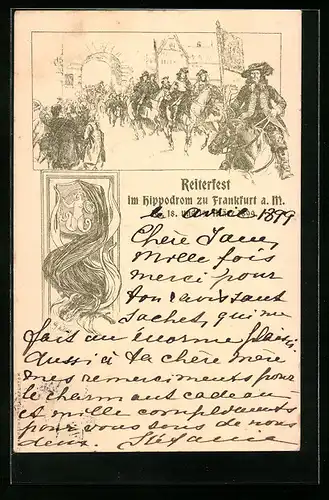 Reiterfest
im Hippodrom zu Frankfurt a. M.
18.
le avril 1899
Chère Jane,
Mille fois
merci pour
ton ravissant
sachet, qui me
fait un énorme plaisir
Aussi à ta chère mère
mes remerciments pour
le charmant cadeau
et mille compliments
pour vous sons de nous
deux. Stéfanie